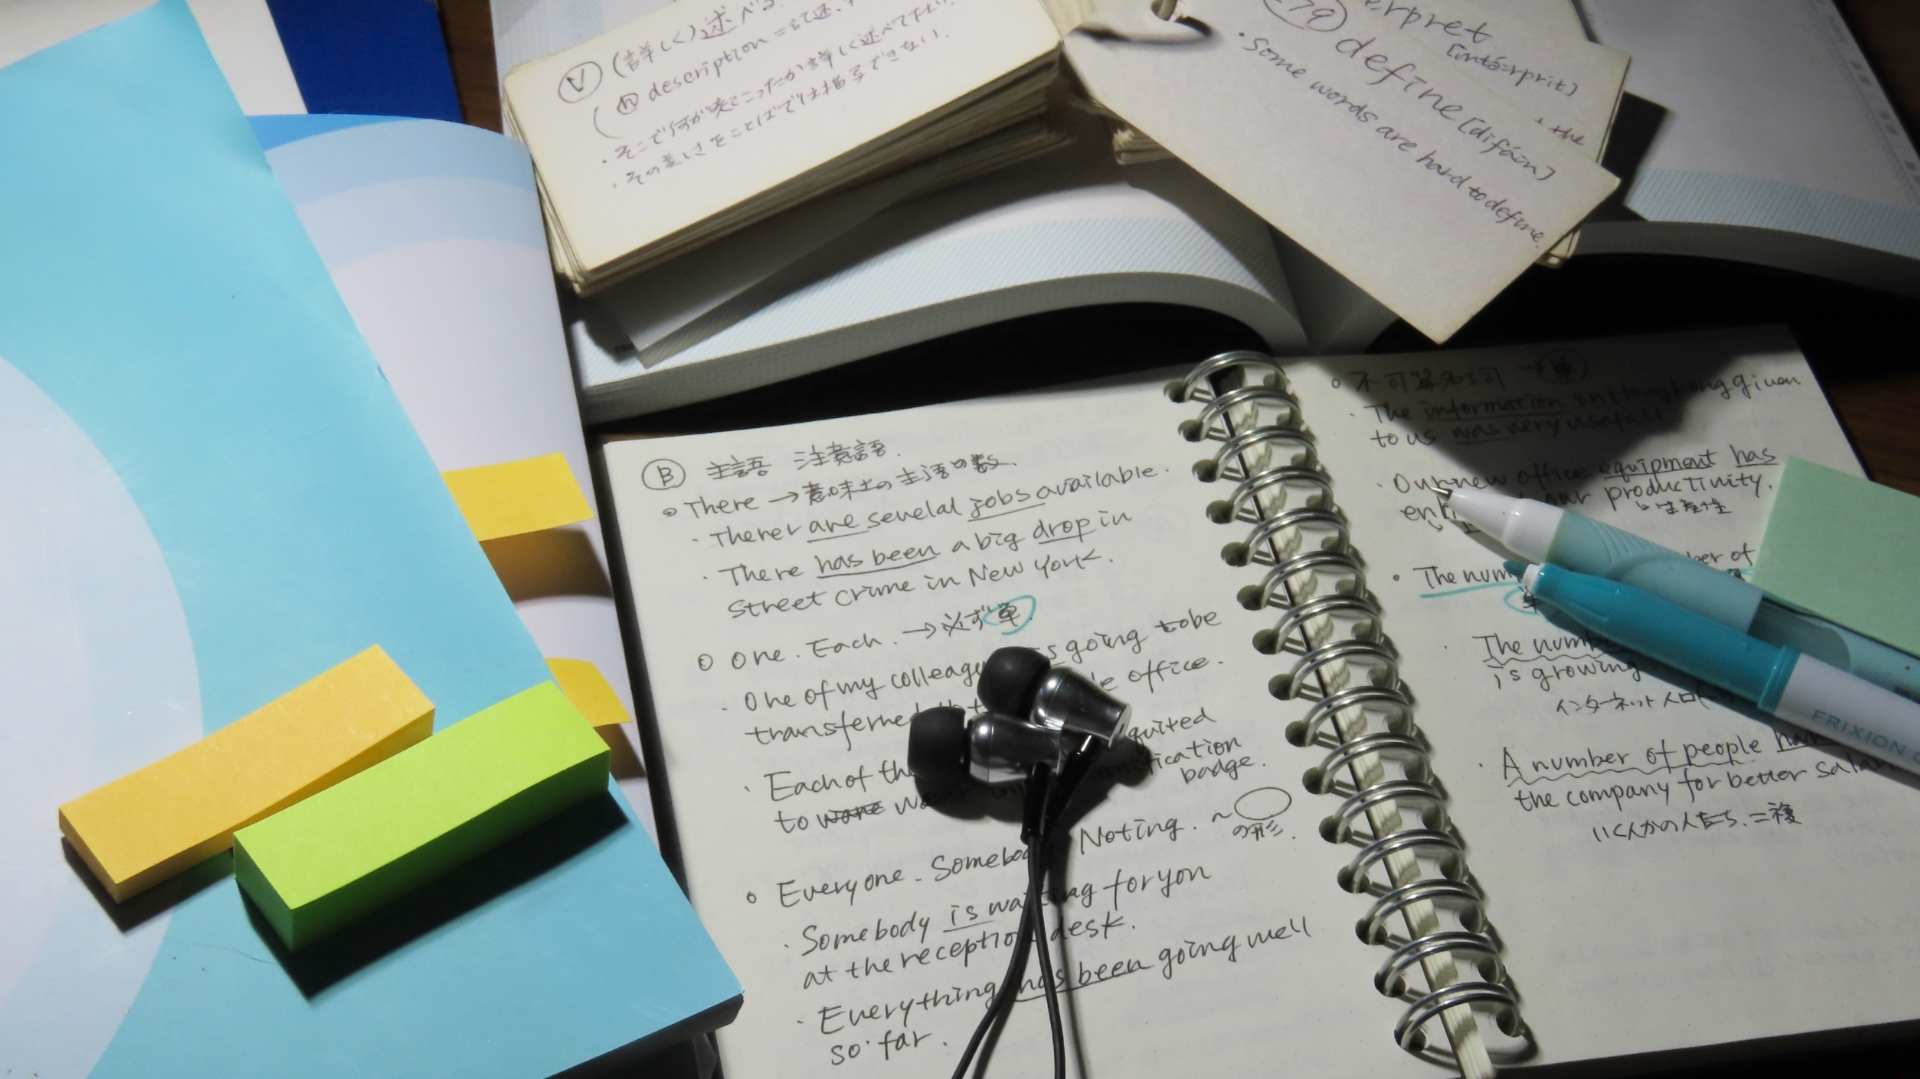 Ⓥ (詳しく)述べる
(ⓝ description = 記述、
・そこで何が起こったか詳しく述べて下さい.
・その美しさをことばでは描写できない.
erpret
[intə́ːrprit]
・the
79 define [difáin]
・Some words are hard to define.
Ⓑ 主語 注意語.
◦ There → 意味上の主語の数.
・Therer are sevelal jobs available.
・There has been a big drop in
street crime in New York.
◦ One. Each. → 必ず単.
・One of my colleagu s going to be
transferred office.
・Each of th quited
to wore ification
badge.
◦ Everyone. Somebo Noting. ~
の形.
・Somebody is waiting for yon
at the reception desk.
・Everything has been going well
so far.
◦ 不可算名詞 → 単
・The information on Hong Kong given
to us was very usefull
・Our new office equipment has
en our productivity.
生産性
◦ The num ber of
単
・The numb
is growing
インターネット人口
・A number of people ha
the company for better sala
いくんかの人たち.=複
FRIXION